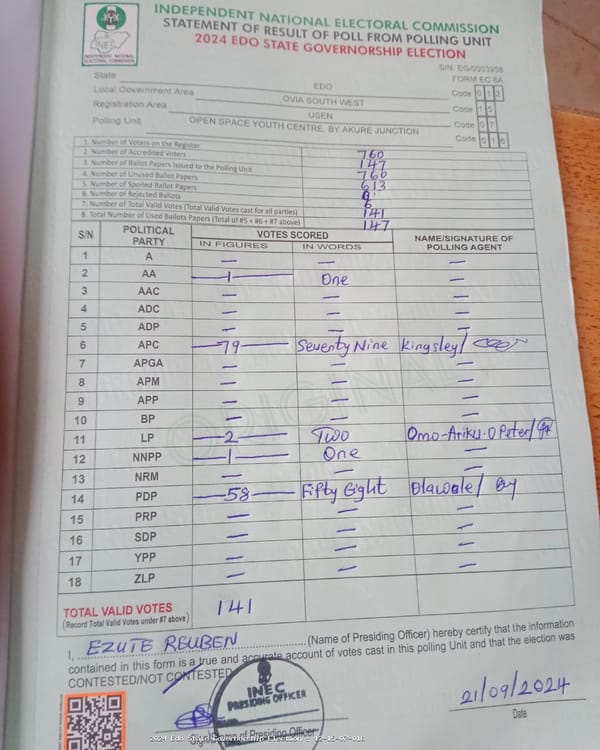 INDEPENDENT NATIONAL ELECTORAL COMMISSION
STATEMENT OF RESULT OF POLL FROM POLLING UNIT
2024 EDO STATE GOVERNORSHIP ELECTION
INEC
INDEPENDENT NATIONAL
ELECTORAL COMMISSION
S/N. EG/0003958
FORM EC 8A
State EDO Code 012
Local Government Area OVIA SOUTH WEST Code 15
Registration Area USEN Code 07
Polling Unit OPEN SPACE YOUTH CENTRE, BY AKURE JUNCTION Code 016
1. Number of Voters on the Register 760
2. Number of Accredited Voters 147
3. Number of Ballot Papers Issued to the Polling Unit 760
4. Number of Unused Ballot Papers 613
5. Number of Spoiled Ballot Papers
6. Number of Rejected Ballots 6
7. Number of Total Valid Votes (Total Valid Votes cast for all parties) 141
8. Total Number of Used Ballots Papers (Total of #5 + #6 + #7 above) 147
S/N POLITICAL PARTY VOTES SCORED NAME/SIGNATURE OF POLLING AGENT
IN FIGURES IN WORDS
1 A — — —
2 AA —1— One —
3 AAC — — —
4 ADC — — —
5 ADP — — —
6 APC —79— Seventy Nine Kingsley/
7 APGA — — —
8 APM — — —
9 APP — — —
10 BP — — —
11 LP —2— Two Omo-Ariku-O Peter/
12 NNPP —1— One —
13 NRM — — —
14 PDP —58— Fifty Eight Olawale/
15 PRP — — —
16 SDP — — —
17 YPP — — —
18 ZLP — — —
TOTAL VALID VOTES 141
(Record Total Valid Votes under #7 above)
ORIGINAL
I, EZUTE REUBEN (Name of Presiding Officer) hereby certify that the information
contained in this form is a true and accurate account of votes cast in this polling Unit and that the election was
CONTESTED/NOT CONTESTED
INEC
PRESIDING OFFICER
21/09/2024
Signature of Presiding Officer Date